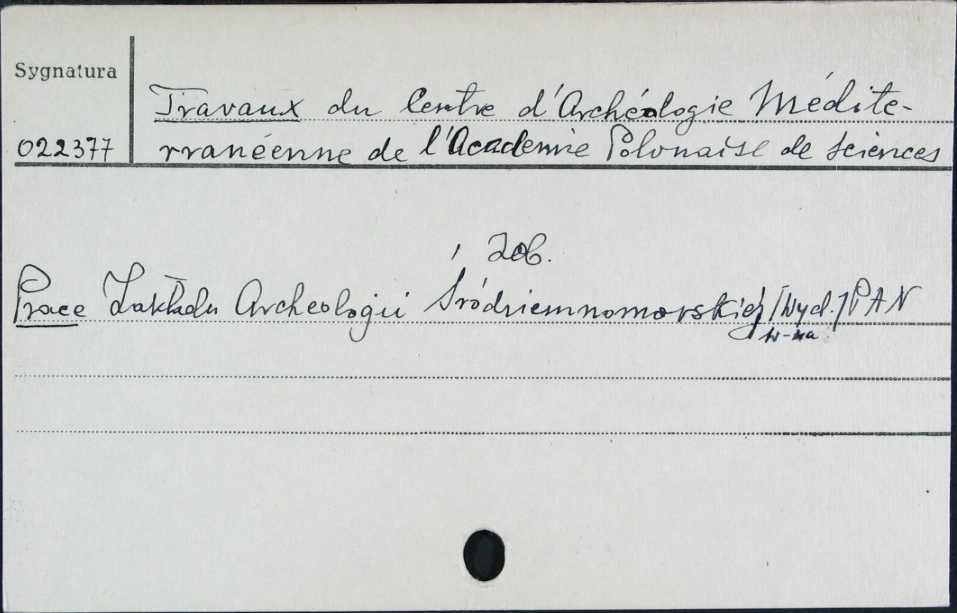 Sygnatura
Travaux du Centre d'Archéologie Médite-
022377
rranéenne de l'Academie Polonaise de sciences
zob.
Prace Zakładu Archeologii Śródziemnomorskiej /Wyd./ PAN
W-wa